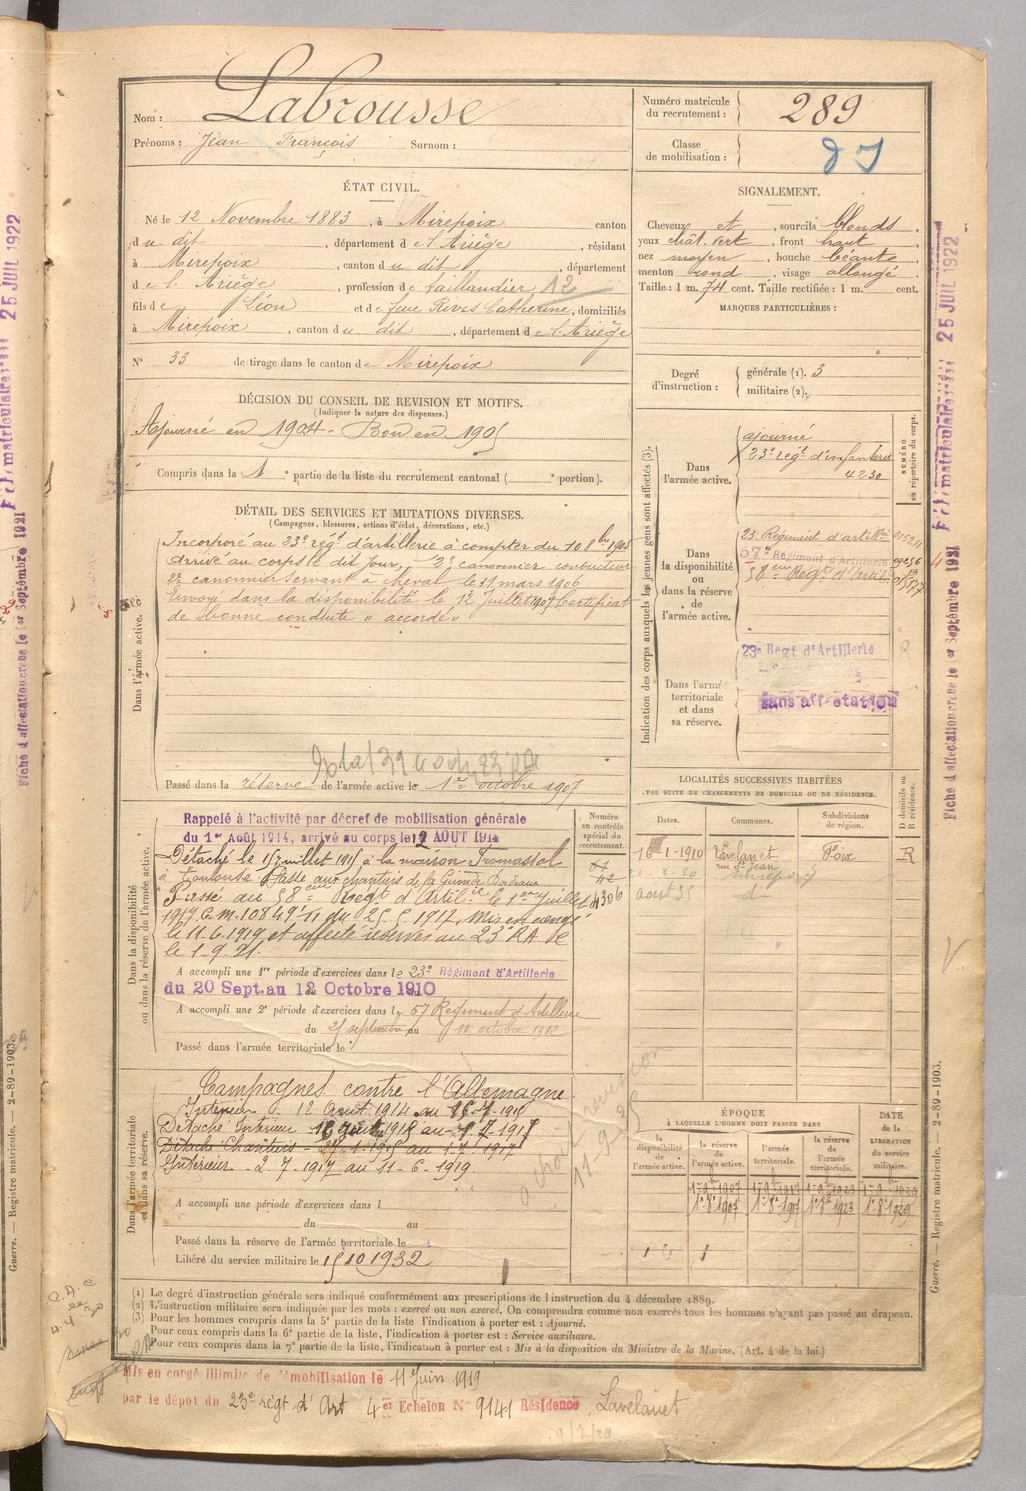 Nom : Labrousse
Prénoms : Jean François Surnom :
Numéro matricule du recrutement : 289
Classe de mobilisation :
ÉTAT CIVIL.
Né le 12 Novembre 1883, à Mirepoix canton
du dit, département de l'Ariège, résidant
à Mirepoix, canton du dit, département
de l'Ariège, profession de taillandier 12
fils de Léon et de feue Rives Catherine, domiciliés
à Mirepoix, canton du dit, département de l'Ariège
N° 33 de tirage dans le canton de Mirepoix
SIGNALEMENT.
Cheveux et, sourcils blonds,
yeux chât. vert, front haut,
nez moyen, bouche béante,
menton rond, visage allongé
Taille : 1 m. 74 cent. Taille rectifiée : 1 m. cent.
MARQUES PARTICULIÈRES :
Degré d'instruction :
générale (1). 3
militaire (2).
DÉCISION DU CONSEIL DE REVISION ET MOTIFS.
(Indiquer la nature des dispenses.)
Ajourné en 1904 - Bon en 1905
Compris dans la 1e partie de la liste du recrutement cantonal ( e portion).
DÉTAIL DES SERVICES ET MUTATIONS DIVERSES.
(Campagnes, blessures, actions d'éclat, décorations, etc.)
Dans l'armée active.
Incorporé au 23e régt d'artillerie à compter du 10 8bre 1905
Arrivé au corps le dit jour, 2e canonnier conducteur
2e canonnier servant à cheval le 31 mars 1906
Envoyé dans la disponibilité le 12 Juillet 1907 Certificat
de bonne conduite " accordé "
Passé dans la réserve de l'armée active le 1er octobre 1907
Indication des corps auxquels les jeunes gens sont affectés (3).
NUMÉRO au répertoire du corps.
Dans l'armée active.
ajourné
23e régt d'infanterie
4230
Dans la disponibilité ou dans la réserve de l'armée active.
23 Régiment d'artillie
57e Régiment d'Artillerie
58eme Régt d'Artie
23e Régt d'Artillerie
Dans l'armée territoriale et dans sa réserve.
sans affectation
LOCALITÉS SUCCESSIVES HABITÉES
PAR SUITE DE CHANGEMENTS DE DOMICILE OU DE RÉSIDENCE.
Dates. Communes. Subdivisions de région. D domicile ou R résidence.
16-1-1910 Lavelanet Foix R
rue St Jean
Mirepoix
aout 35 d-
Dans la disponibilité ou dans la réserve de l'armée active.
Numéro au contrôle spécial du recrutement.
Rappelé à l'activité par décret de mobilisation générale
du 1er Août 1914, arrivé au corps le 12 AOUT 1914
Détaché le 15 juillet 1915 à la maison
à Toulouse. Passé aux chantiers de la Gironde Bordeaux
Passé au 58eme Régt d'Artilie le 1er Juillet
1917. C. M. 10849/11 du 25. 5. 1917. Mis en congé
le 11.6.1919 et affecté réserves au 23e RA
le 1.9.21.
4306
A accompli une 1re période d'exercices dans le 23e Régiment d'Artillerie
du 20 Sept. au 12 Octobre 1910
A accompli une 2e période d'exercices dans le 57 Régiment d'Artillerie
du 25 septembre au 11 octobre 1912
Passé dans l'armée territoriale le
Dans l'armée territoriale et dans sa réserve.
Campagnes contre l'Allemagne
Intérieur. 12 Aout 1914 au
Détaché Intérieur au 1-7-1917
Détaché Chantiers - 27-1-1915 au 1-7-1917
Intérieur - 2. 7. 1917 au 11-6-1919
A accompli une période d'exercices dans l
du au
Passé dans la réserve de l'armée territoriale le
Libéré du service militaire le 15 10 1932
ÉPOQUE
À LAQUELLE L'HOMME DOIT PASSER DANS
la disponibilité de l'armée active.
la réserve de l'armée active.
l'armée territoriale.
la réserve de l'armée territoriale.
DATE de la LIBÉRATION du service militaire.
(1) Le degré d'instruction générale sera indiqué conformément aux prescriptions de l'instruction du 4 décembre 1889.
(2) L'instruction militaire sera indiquée par les mots : exercé ou non exercé. On comprendra comme non exercés tous les hommes n'ayant pas passé au drapeau.
(3) Pour les hommes compris dans la 5e partie de la liste l'indication à porter est : Ajourné.
Pour ceux compris dans la 6e partie de la liste, l'indication à porter est : Service auxiliaire.
Pour ceux compris dans la 7e partie de la liste, l'indication à porter est : Mis à la disposition du Ministre de la Marine. (Art. 4 de la loi.)
Mis en congé illimité de démobilisation le 11 Juin 1919
par le dépot du 23e régt d'Art 4er Echelon N° 9141 Résidence Lavelanet
Fiche d'affectation créée le 1er Septembre 1921
25 JUIL 1922
Guerre. — Registre matricule. — 2-89-1903.
Fiche d'affectation créée le 1er Septembre 1921
25 JUIL 1922
Guerre. — Registre matricule. — 2-89-1903.